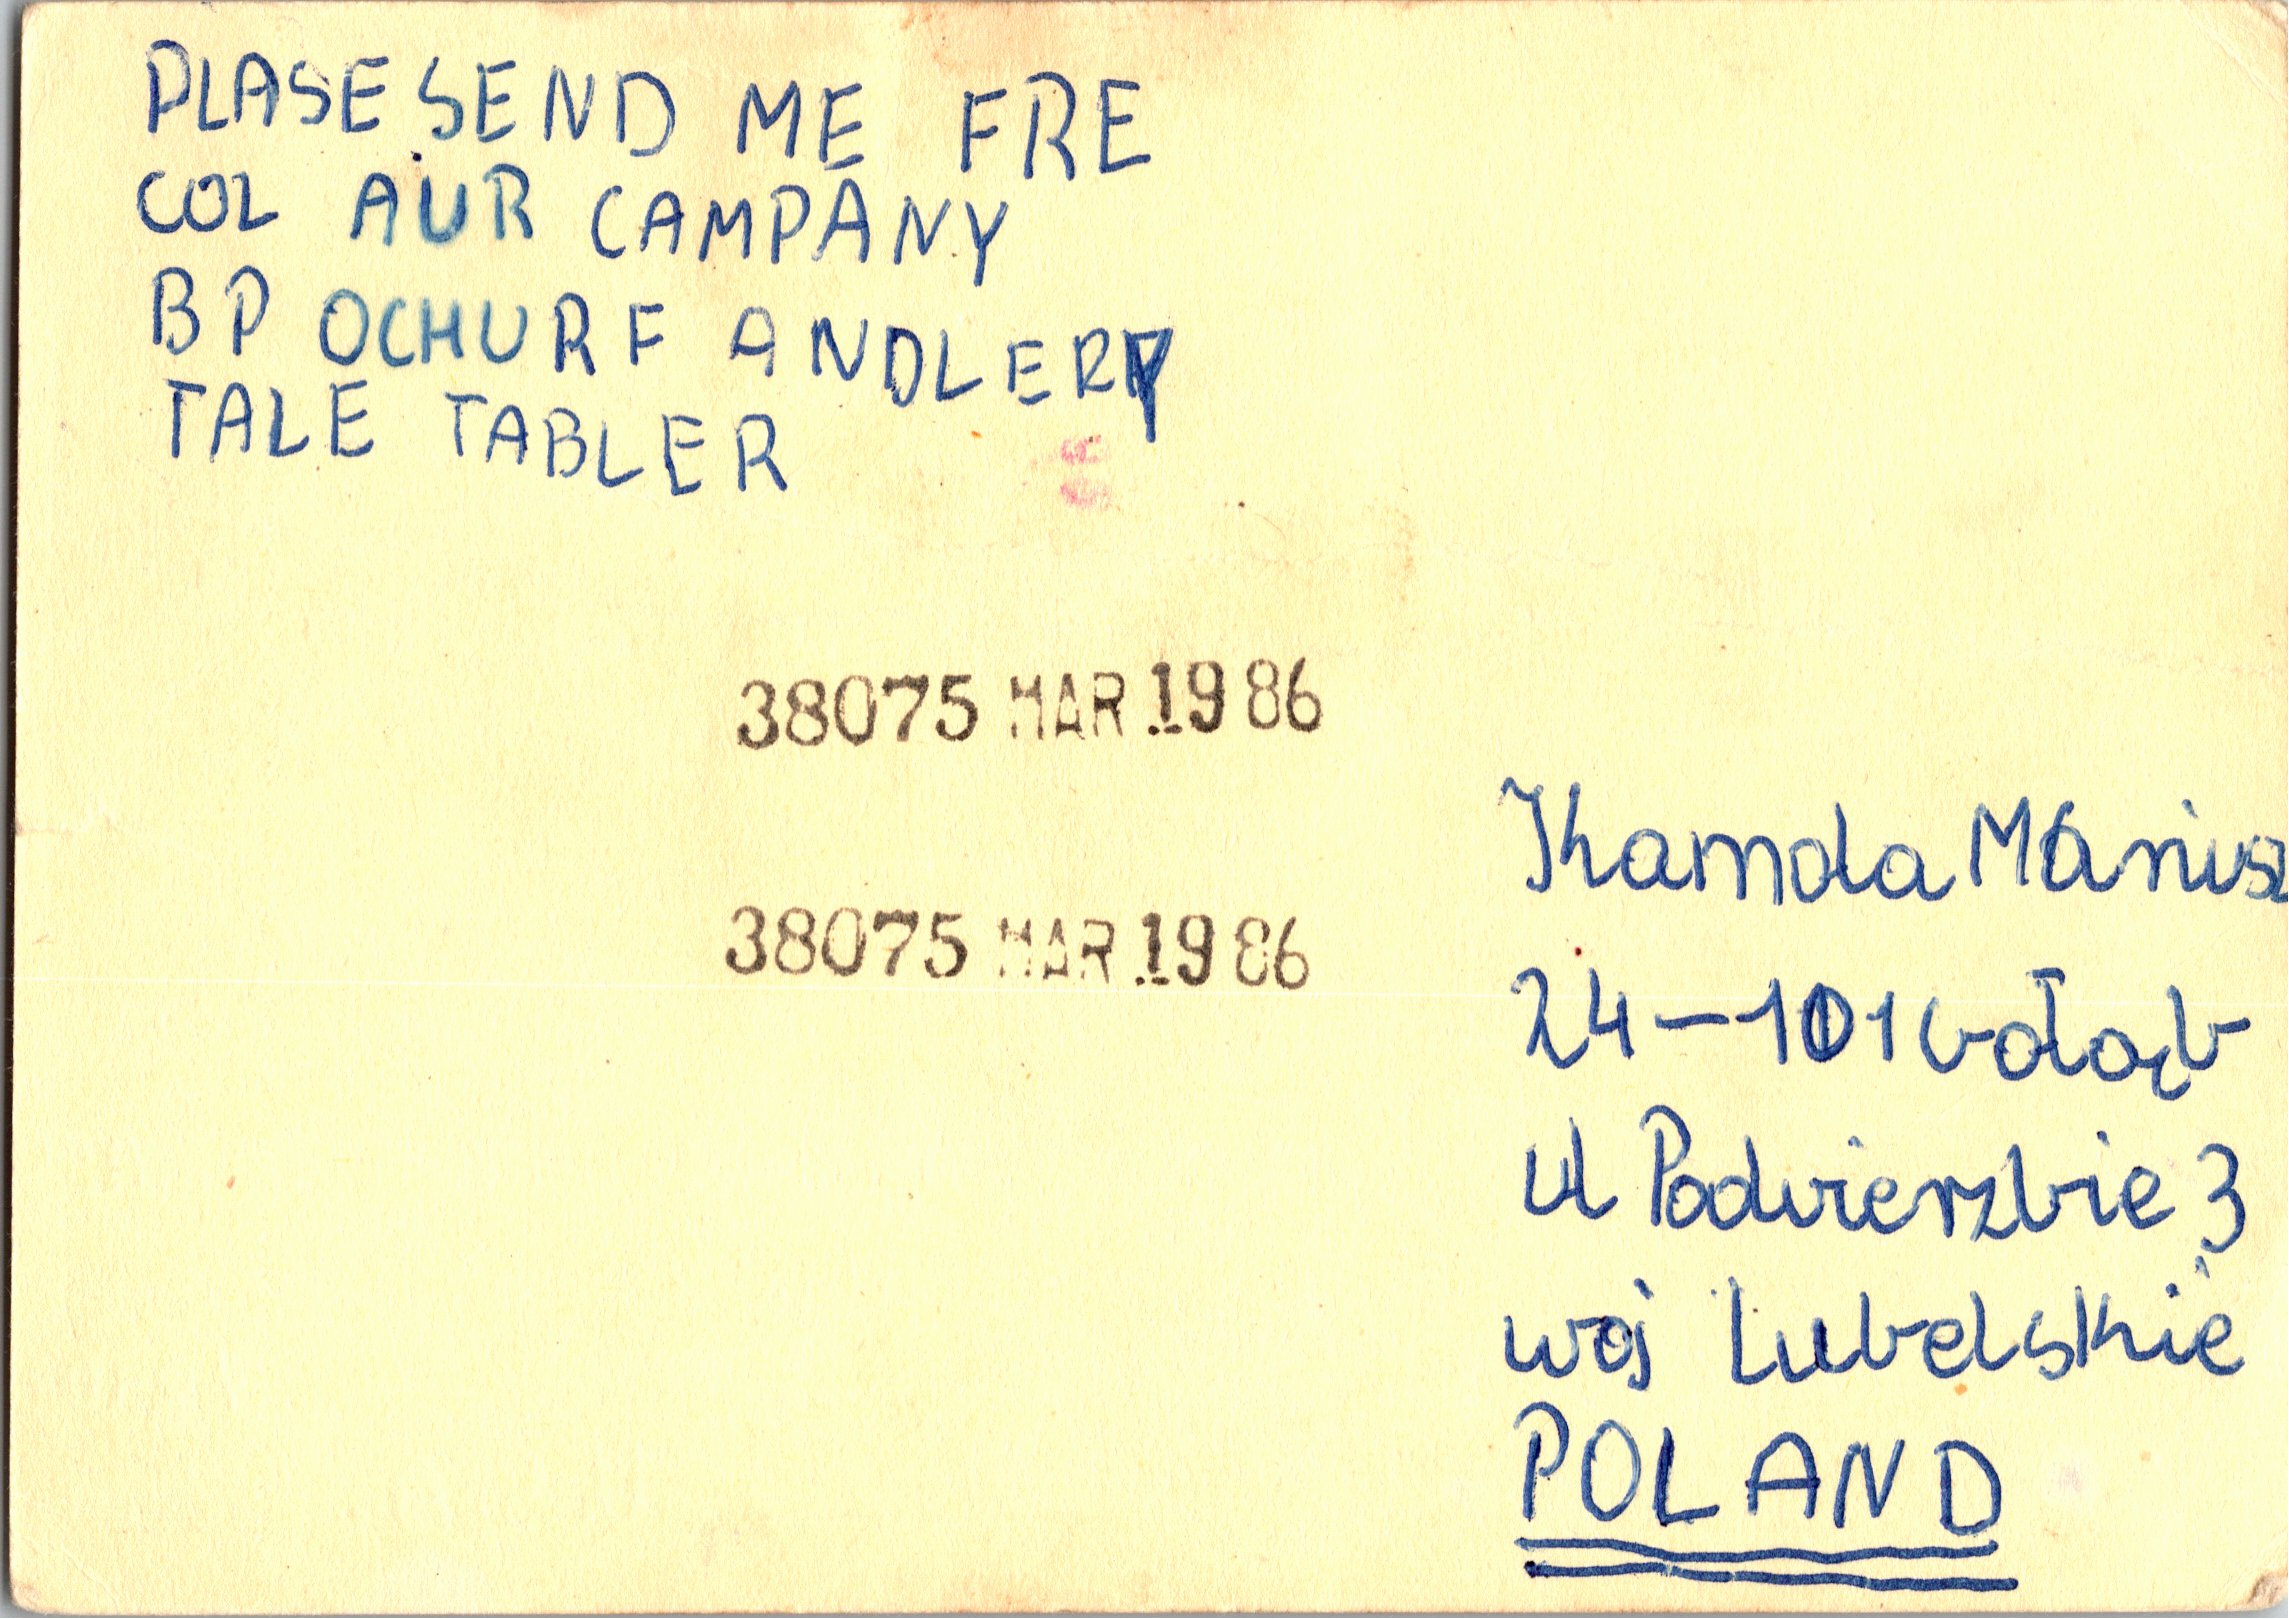 PLASE SEND ME FRE
COL AUR CAMPANY
BP OCHURF ANDLERY
TALE TABLER
38075 MAR 19 86
38075 MAR 19 86
Kamola Mariusz
24-101 Gołąb
ul Podwierzbie 3
woj Lubelskie
POLAND